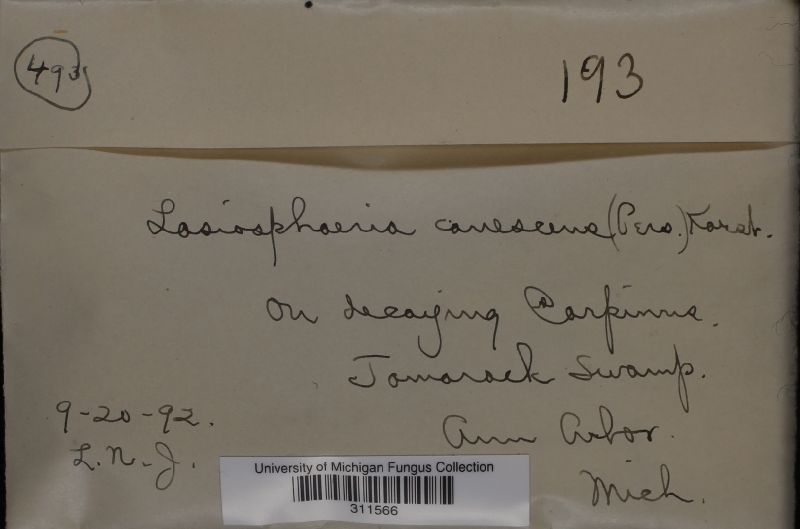 493
193
Lasiosphaeria canescens (Pers.) Karst.
on decaying Carpinus.
Tamarack Swamp.
9-20-92.
Ann Arbor.
L. N. J.
Mich.
University of Michigan Fungus Collection
311566